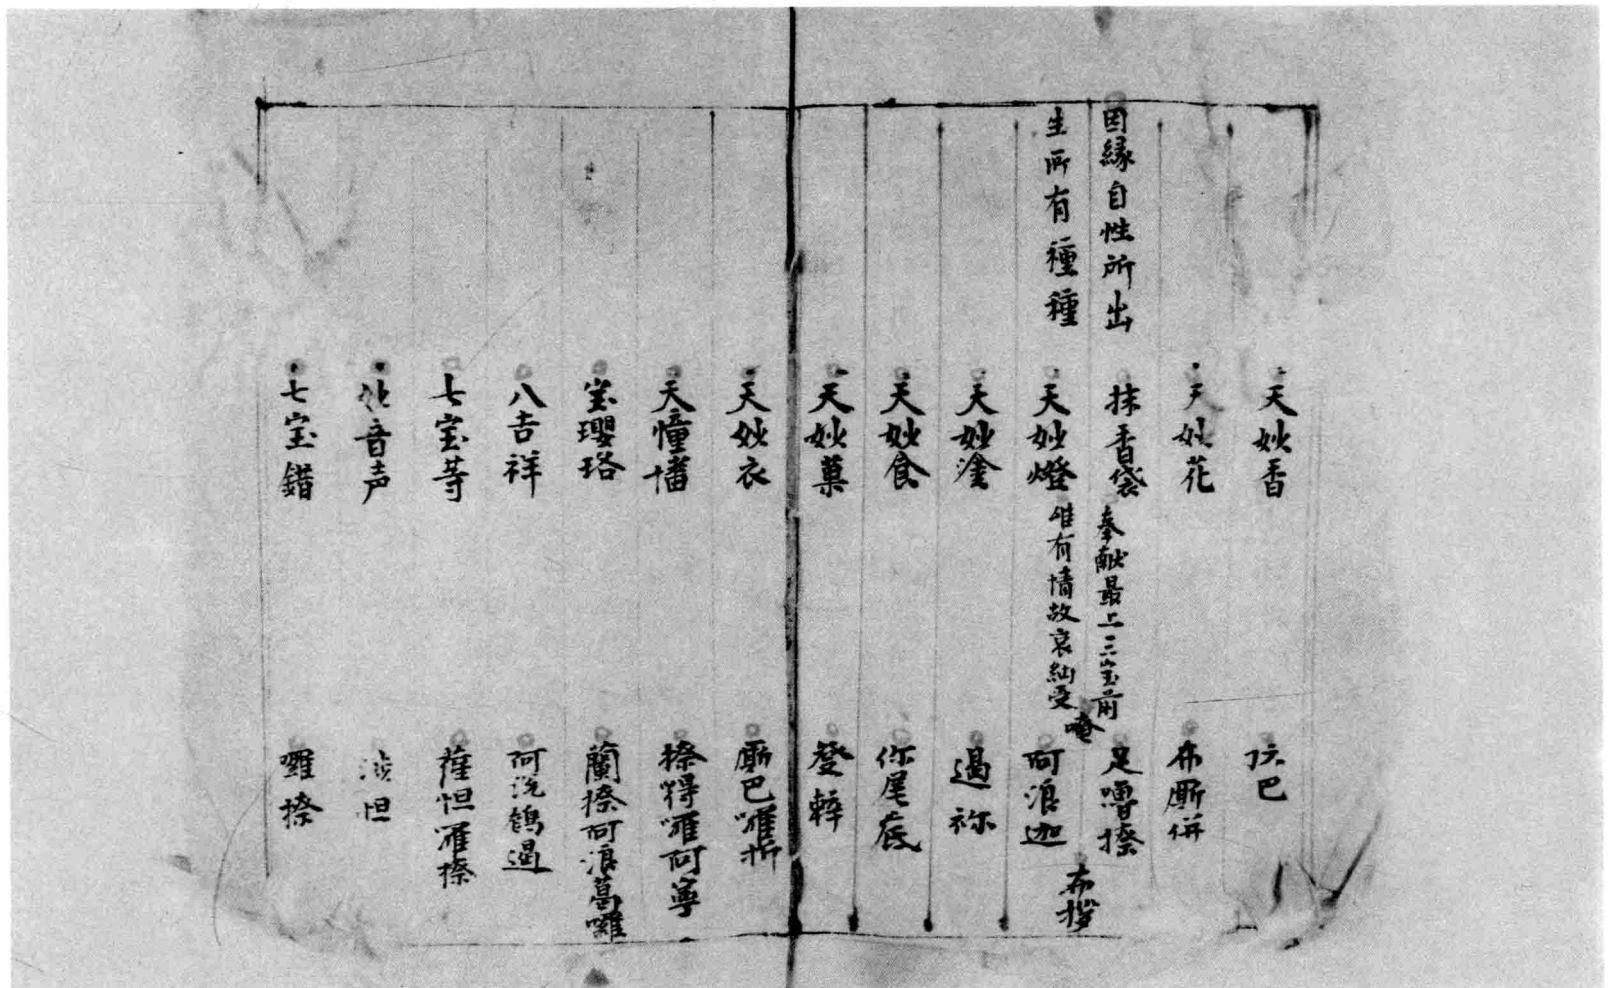 天妙香 㤥巴
天妙花 布厮併
因緣自性所出 抹香袋 奉献最上三宝前 唵 足嚕捺 布拶
生所有種種 天妙燈 唯有情故哀納受 阿浪迦
天妙塗 遏祢
天妙食 你尾底
天妙菓 發觧
天妙衣 厮巴囉折
天幢幡 捺得囉阿寧
宝瓔珞 蘭捺阿浪葛囉
八吉祥 阿洗鶴遏
七宝等 薩怛囉捺
妙音声 怛
七宝錯 囉捺